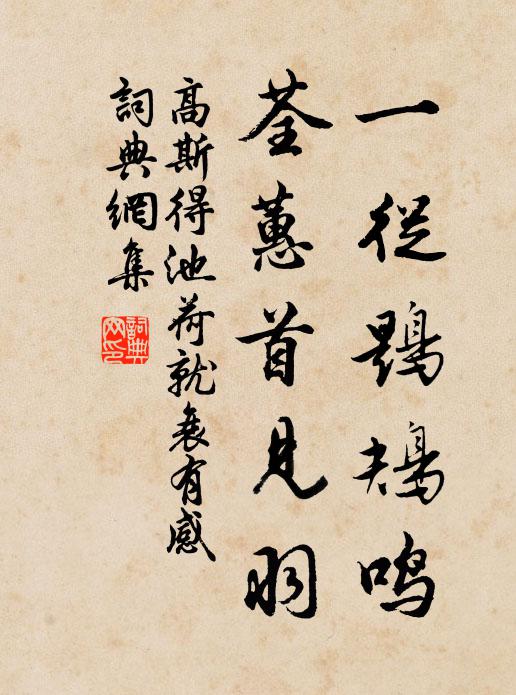 一從鶗鴂鳴
荃蕙首見羽
高斯得池荷就衰有感
詞典網集
詞典
网印